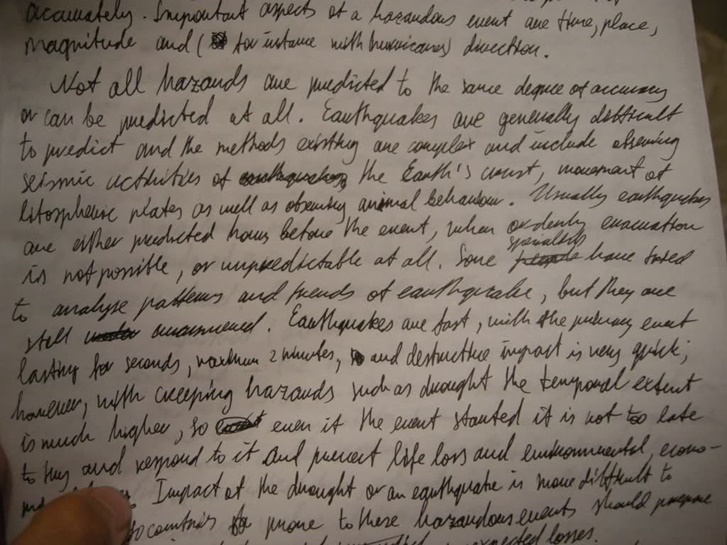 accurately. Important aspects of a hazardous event are time, place,
magnitude and ( for instance with hurricanes) direction.
Not all hazards are predicted to the same degree of accuracy
or can be predicted at all. Earthquakes are generally difficult
to predict and the methods existing are complex and include observing
seismic activities of the Earth's crust, movement of
litospheric plates as well as observing animal behaviour. Usually earthquakes
are either predicted hours before the event, when orderly evacuation
is not possible, or unpredictable at all. Some specialists have tried
to analyse patterns and trends of earthquake, but they are
still . Earthquakes are fast, with the primary event
lasting for seconds, maximum 2 minutes, and destructive impact is very quick;
however, with creeping hazards such as drought the temporal extent
is much higher, so even if the event started it is not too late
to try and respond to it and prevent life loss and environmental, econo-
Impact of the drought or an earthquake is more difficult to
countries prone to these hazardous events should prepare
expected losses.